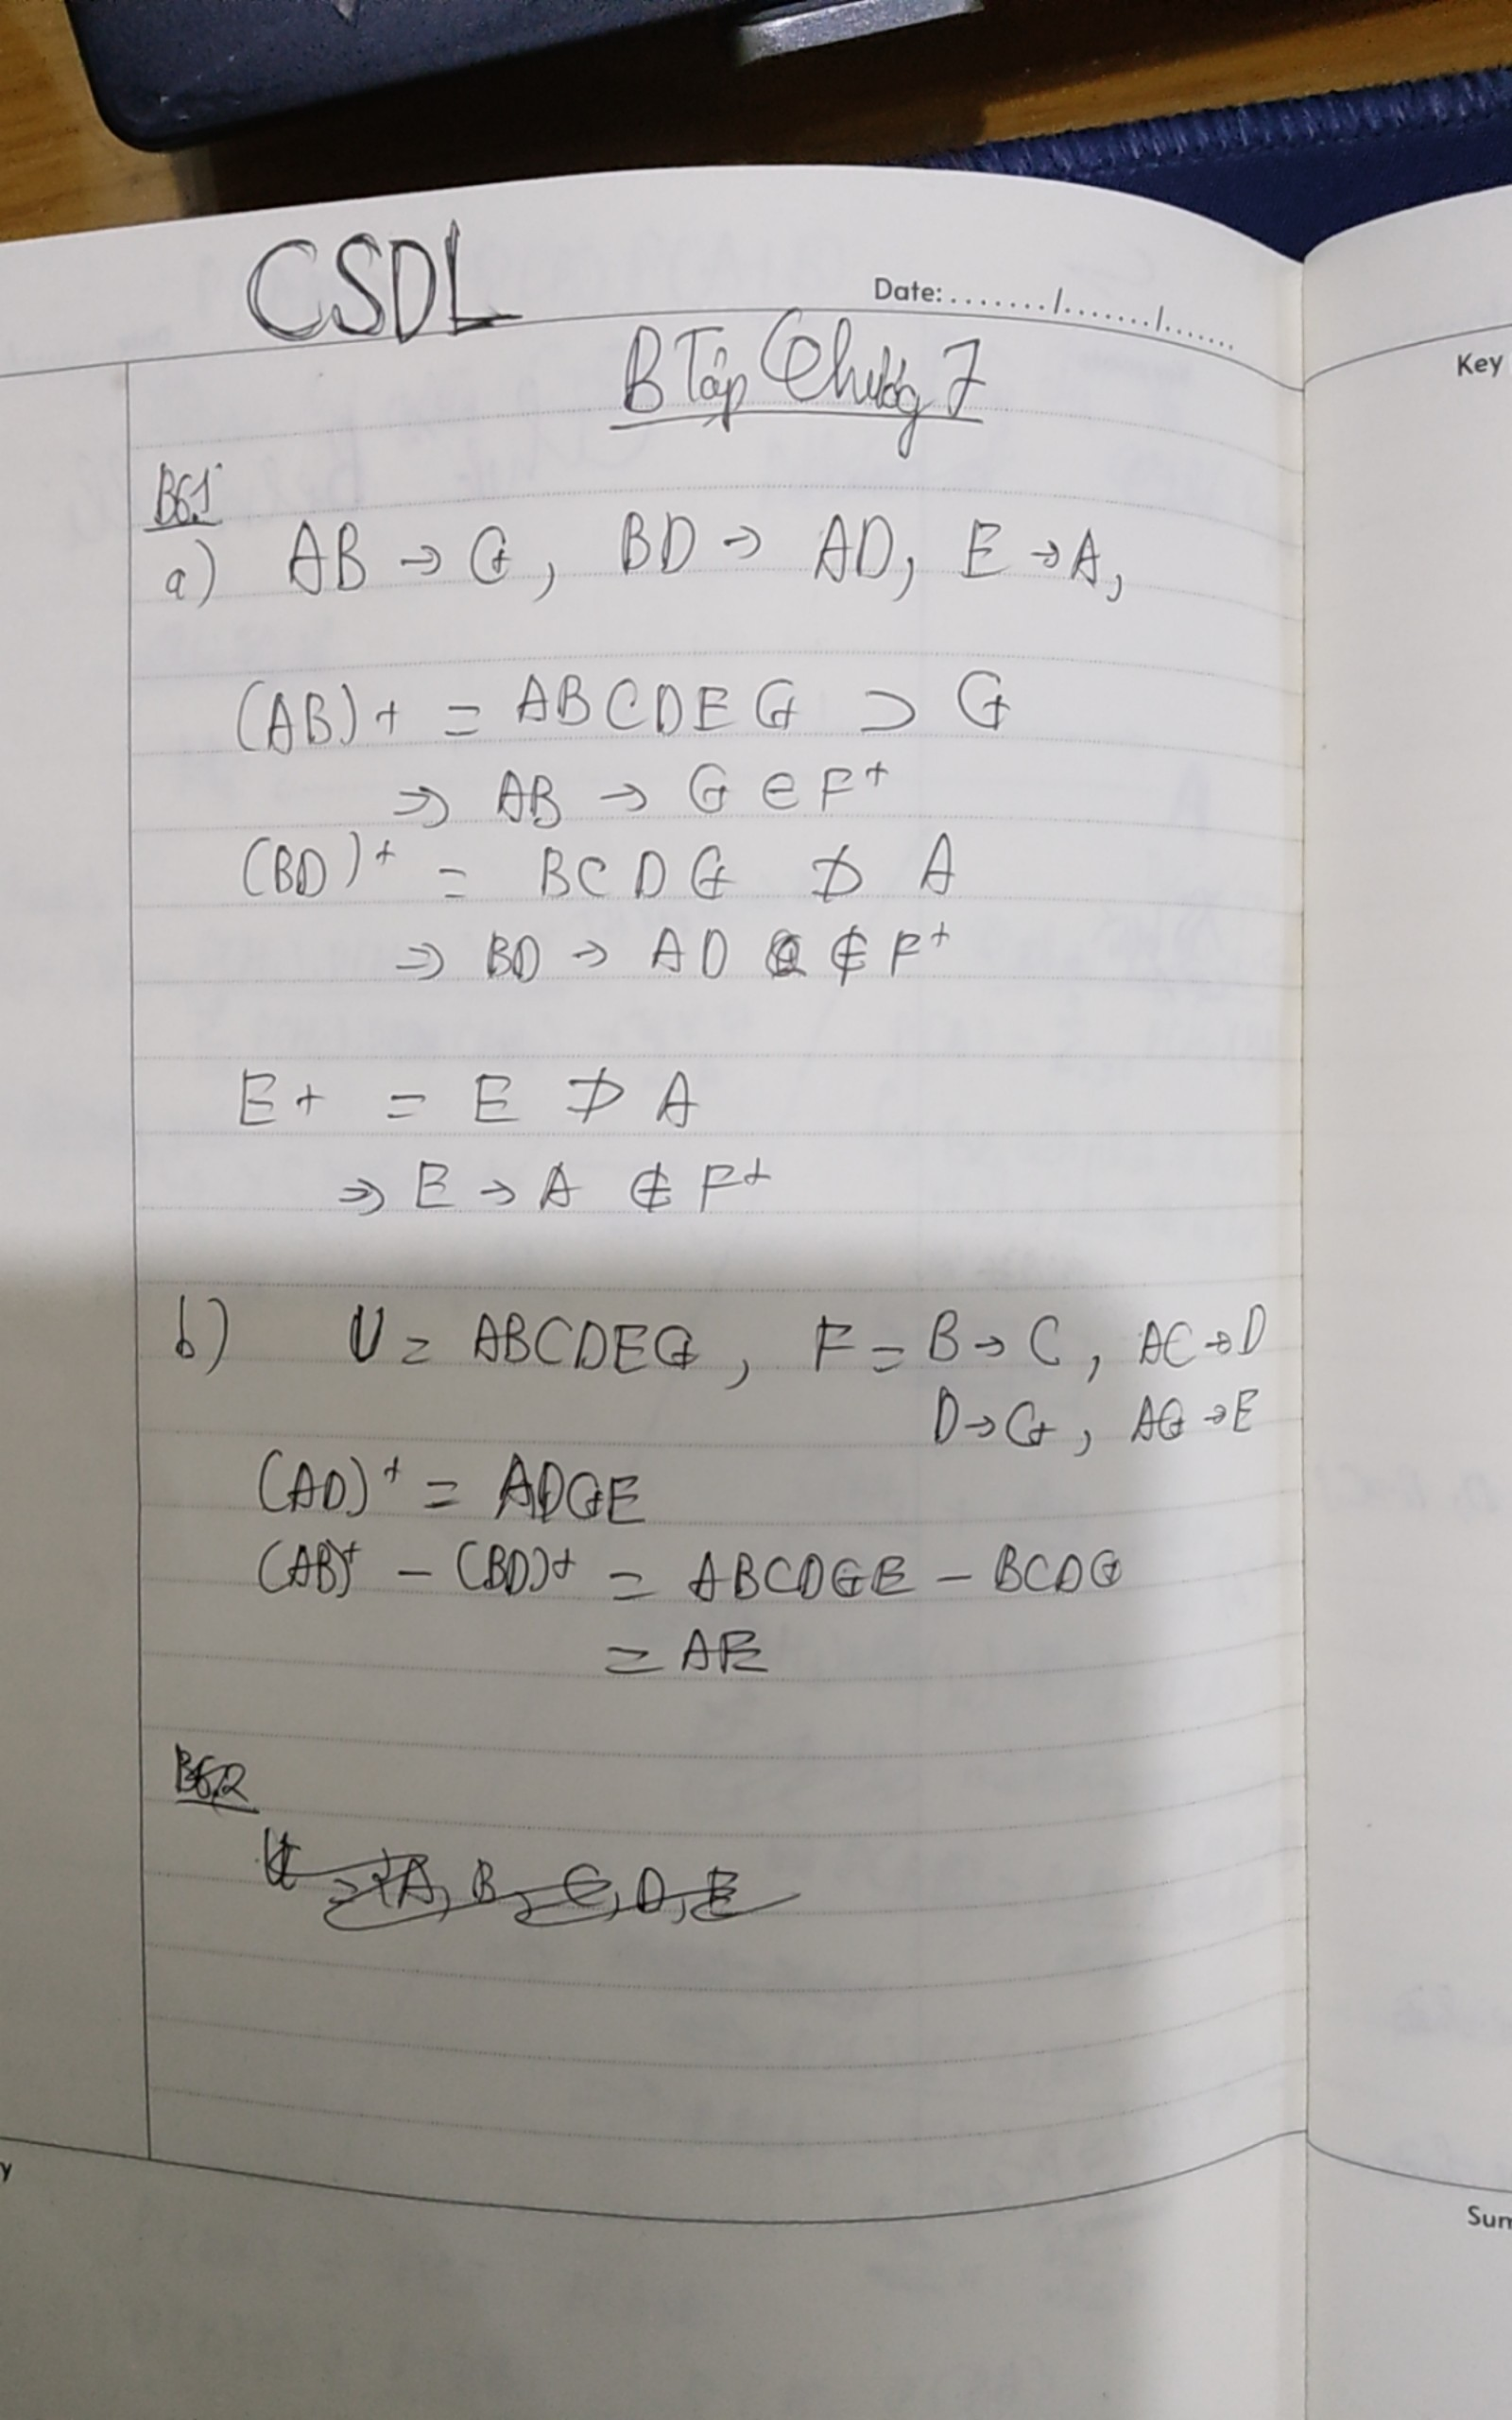 CSDL
Date:......./......./.......
Key
B Tập Chương 7
B6.1
a) AB → G, BD → AD, E → A,
(AB)+ = ABCDEG ⊃ G
⇒ AB → G ∈ F+
(BD)+ = BCDG ⊅ A
⇒ BD → AD ∉ F+
E+ = E ⊅ A
⇒ E → A ∉ F+
b) U = ABCDEG, F = B → C, AC → D
D → G, AG → E
(AD)+ = ADGE
(AB)+ - (BD)+ = ABCDGE - BCDG
= AE
B6.2
U = {A, B, C, D, E
y
Sum